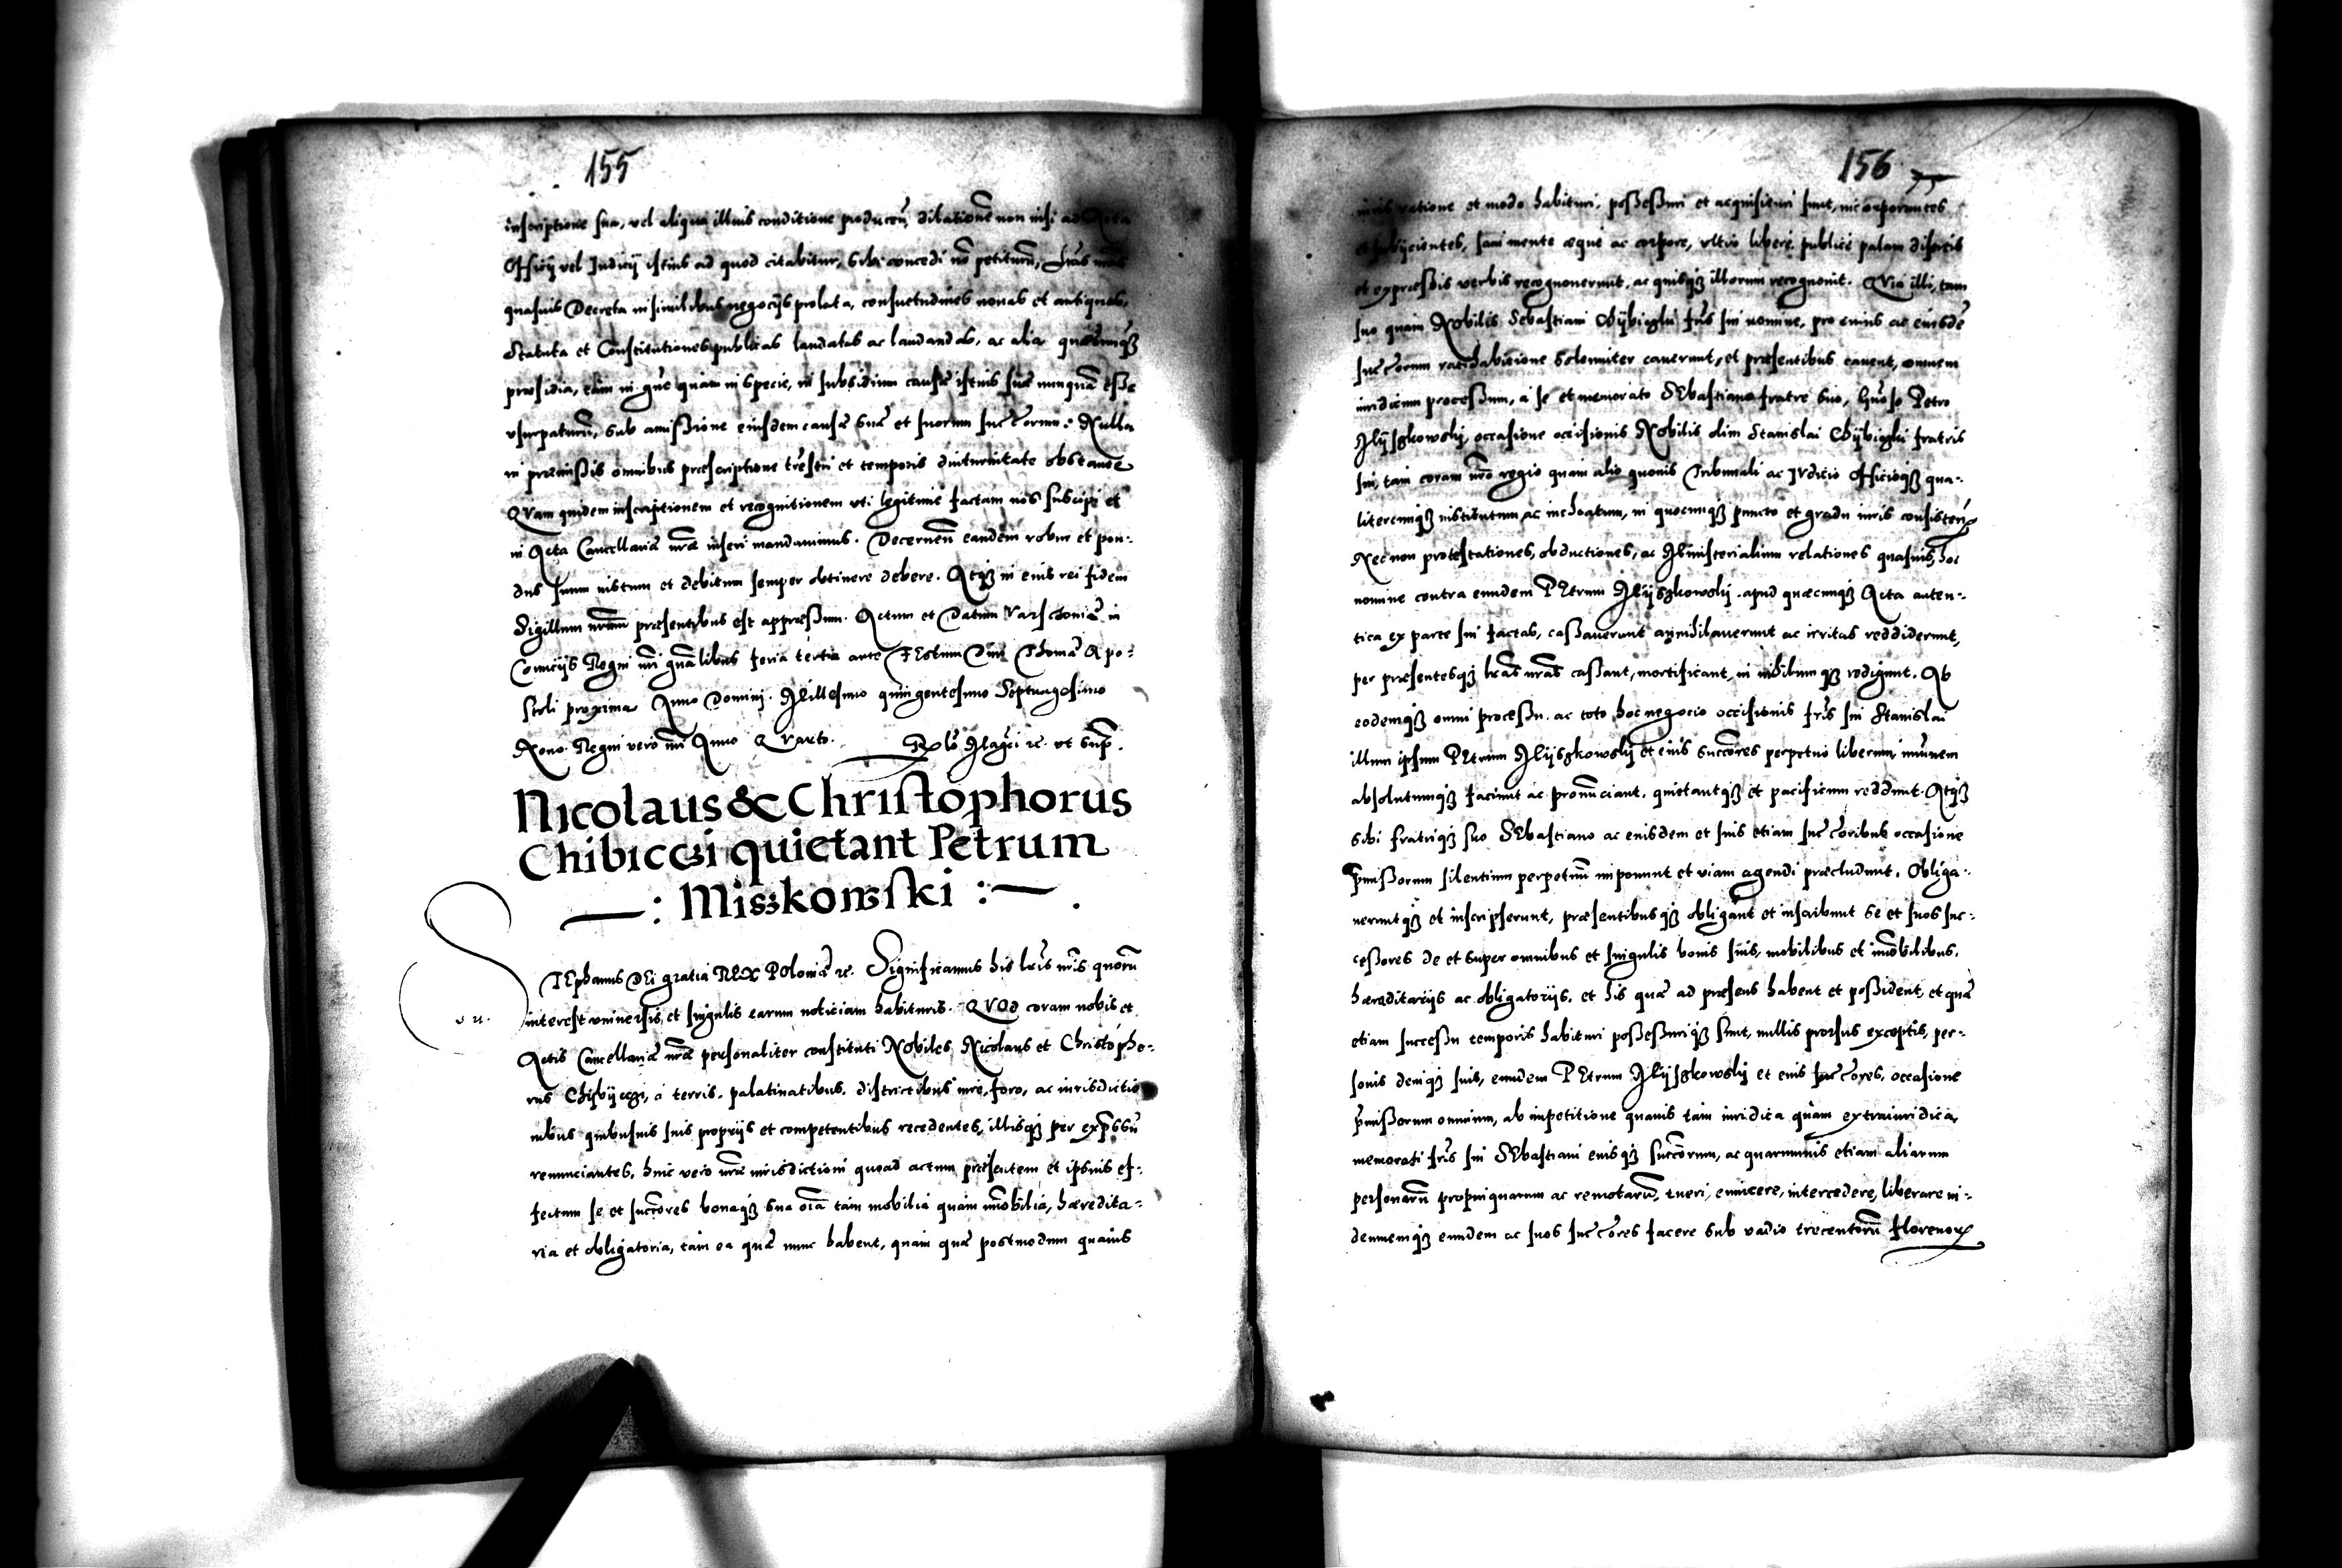 155
inscriptione sua, vel aliqua illius conditione producen̄, dilationē non nisi ad Acta
Officij vel Iudicij istius ad quod citabitur, sibi concedi nō petiturū, Lrās nrās
quasuis Decreta in similibus negocijs prolata, consuetudines nouas et antiquas,
Statuta et Constitutiones publicas laudatas ac laudandas, ac alia quæcunqȝ
præsidia, tam in gn̄e quam in specie, in subsidium causæ istius suæ nunquā esse
vsurpaturū, sub amissione eiusdem causæ suæ et suorum succ̄orum. Nulla
in præmissis omnibus præscriptione tr̄estri et temporis diuturnitate obstante
QVam quidem inscriptionem et recognitionem vti legitime factam nos suscipi et
in Acta Cancellariæ nr̄æ inseri mandauimus. Decernen̄ eandem robur et pon-
dus suum iustum et debitum semper obtinere debere. Atqȝ in eius rei fidem
Sigillum nr̄um præsentibus est appræssum. Actum et Datum Varschouiæ in
Comicijs Regni nr̄i gn̄alibus feria tertia ante FEstum Diui Thomæ Apo-
stoli proxima Anno Domini Millesimo quingentesimo Septuagesimo
Nono Regni vero nr̄i Anno QVarto. Rel̄o Mag̃ci ꝛc. ut sup̃.
Nicolaus & Christophorus
Chibiczi quietant Petrum
—: Miszkowski :—
STEphanus DEi gratia REX POloniæ ꝛc. Significamus his lrīs nrīs quorū
interest vniuersis et singulis earum noticiam habituris. QVOd coram nobis et
Actis Cancellariæ nr̄æ personaliter constituti Nobiles Nicolaus et Christopho-
rus Chijbijczi, a terris, palatinatibus, districtibus iure, foro, ac iurisdictio
nibus quibusuis suis proprijs et competentibus recedentes, illisqȝ per exp̃ssū
renunciantes, huic vero nr̄æ iurisdictioni quoad actum præsentem et ipsius ef-
fectum se et succ̄ores bonaqȝ sua oīa tam mobilia quam im̄obilia, hæredita-
ria et obligatoria, tam ea quæ nunc habent, quam quæ postmodum quauis
156
iuris ratione et modo habituri, possessuri et acquisituri sunt, incorporantes
et subijcientes, sani mente æque ac corpore, vltro libere publice palam disertis
et expræssis verbis recognouerunt, ac quisqȝ illorum recognouit. QVia illi, tam
suo quam Nobilis Sebastiani Chijbiczki frīs sui nomine, pro cuius ac eiusdē
succ̄orum ratihabitione solemniter cauerunt, et præsentibus cauent, omnem
iuridicum processum, a se et memorato SEbastiano fratre suo, Gn̄oso Petro
Mijszkowskij occasione occisionis Nobilis olim Stanislai Chijbiczki fratris
sui, tam coram nr̄o regio quam alio quouis Tribunali ac IVdicio Officioqȝ qua-
litercunqȝ institutum ac inchoatum, in quocunqȝ puncto et gradu iuris consisten̄
Nec non protestationes, obductiones, ac Ministerialium relationes quasuis, hoc
nomine contra eundem PEtrum Mijszkowskij apud quæcunqȝ Acta auten-
tica ex parte sui factas, cassauerunt annihilauerunt ac irritas reddiderunt,
per præsentesqȝ lrās nrās cassant, mortificant, in nihilumqȝ redigunt. Ab
eodemqȝ omni processu ac toto hoc negocio occisionis frīs sui Stanislai
illum ipsum PEtrum Mijszkowskij et eius succ̄ores perpetuo liberum, imūnem
absolutumqȝ faciunt ac pronūciant, quietantqȝ et pacificum reddunt. Atqȝ
sibi fratriqȝ suo SEbastiano ac eiusdem et suis etiam succ̄oribus occasione
p̄missorum silentium perpetuū imponunt et viam agendi præcludunt. Obliga-
ueruntqȝ et inscripserunt, præsentibusqȝ obligant et inscribunt se et suos suc-
cessores de et super omnibus et singulis bonis suis, mobilibus et im̄obilibus,
hæreditarijs ac obligatorijs, et his quæ ad præsens habent et possident, et quæ
etiam successu temporis habituri possessuriqȝ sunt, nullis prorsus exceptis, per-
sonis deniqȝ suis, eundem PEtrum Mijszkowskij et eius succ̄ores, occasione
p̄missorum omnium, ab inpetitione quauis tam iuridica quam extraiuridica,
memorati frīs sui SEbastiani eiusqȝ succ̄orum, ac quarumuis etiam aliarum
personarū propinquarum ac remotarū, tueri, euincere, intercedere, liberare in-
demnemqȝ eundem ac suos succ̄ores facere sub vadio trecentorū florenoꝝ